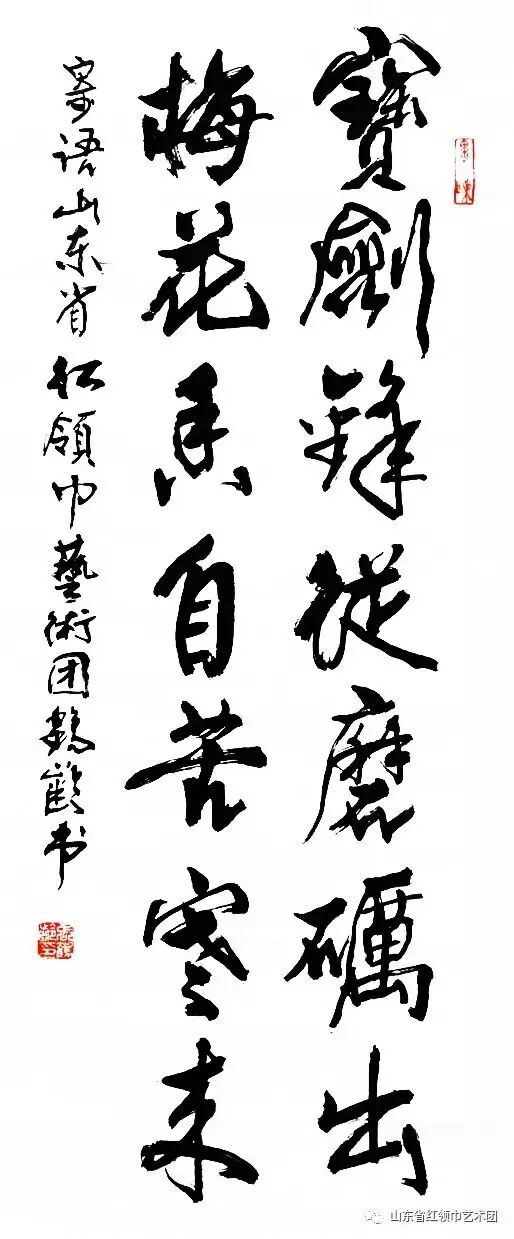 寶劍鋒從磨礪出
梅花香自苦寒来
寄语山东省红領巾藝術团鹤龄书
山东省红领巾艺术团